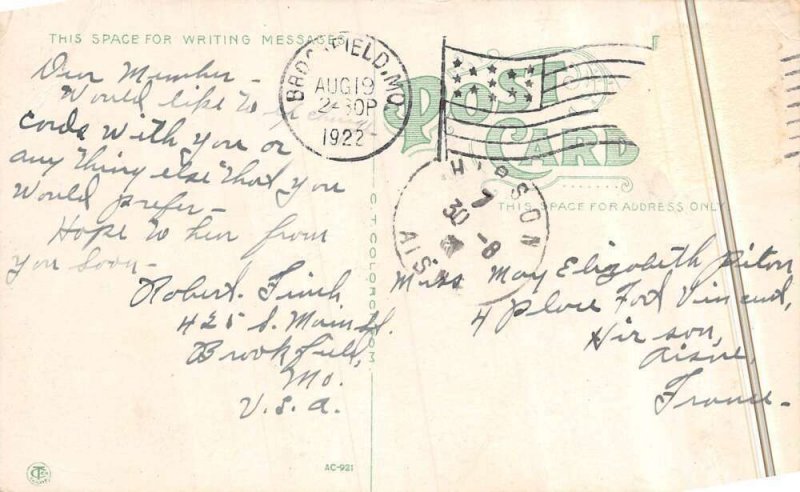 THIS SPACE FOR WRITING MESSAGES
BROOKFIELD, MO.
AUG 19
2-30P
1922
POST CARD
THIS SPACE FOR ADDRESS ONLY
HIRSON
AISNE
30
-8
Dear Member -
Would like to exchange
cords with you or
any thing else that you
would prefer -
Hope to hear from
you soon -
Robert Finch
425 S. Main St.
Brookfield,
Mo.
U.S.A.
Miss May Elizabeth Piton
4 Place Fort Vincent,
Hirson,
Aisne,
France -
C.T. COLORCHROM
AC-921